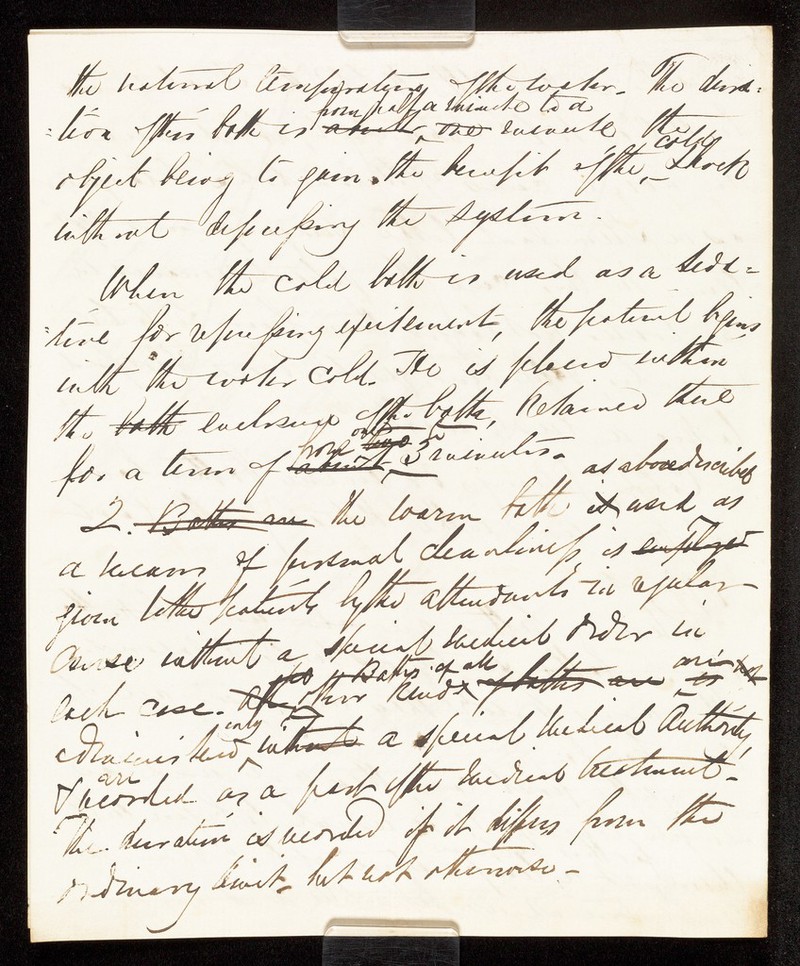 the natural temperature of the water. The dura=
=tion of this bath is from half a minute to a about one minute the
object being to gain the benefit of the cold shock
without depressing the system.
When the cold bath is used as a seda=
=tive for repressing excitement, the patient begins
with the water cold. He is placed within
the bath enclosure of the baths, & retained there
for a term of from one about two 5 minutes.
2. Baths are the warm bath is used as above described as
a means of personal cleanliness is employed
given to the patients by the attendants in regular
course without a special medical order in
each case. All other Baths of all kinds of baths are are is not
administered only without a special medical authority,
& are recorded as a part of the medical treatment.
The duration is recorded if it differs from the
ordinary limit, but not otherwise.